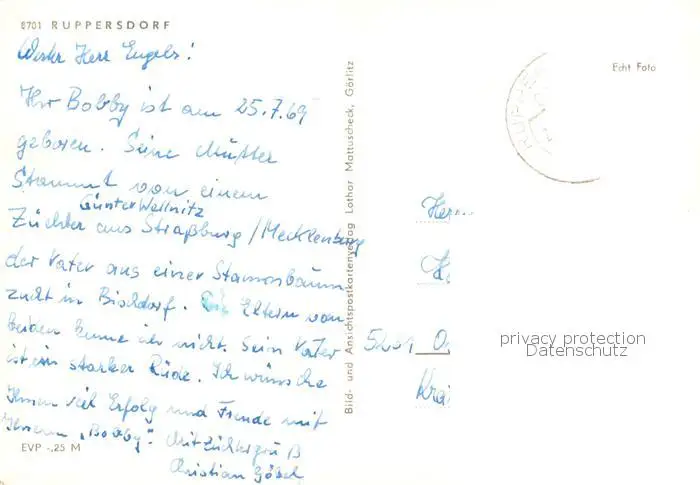 8701 RUPPERSDORF
Werter Herr Engels!
Ihr Bobby ist am 25.7.69
geboren. Seine Mutter
stammt von einem
Günter Wellnitz
Züchter aus Straßburg/Mecklenburg
der Vater aus einer Stammbaum
zucht in Bischdorf. Die Eltern von
beiden kenne ich nicht. Sein Vater
ist ein starker Rüde. Ich wünsche
Ihnen viel Erfolg und Freude mit
Ihrem „Bobby". Mit Züchtergruß
Christian
EVP -,25 M
Bild- und Ansichtspostkartenverlag Lothar Mattuscheck, Görlitz
Echt Foto
Herrn
privacy protection
Datenschutz